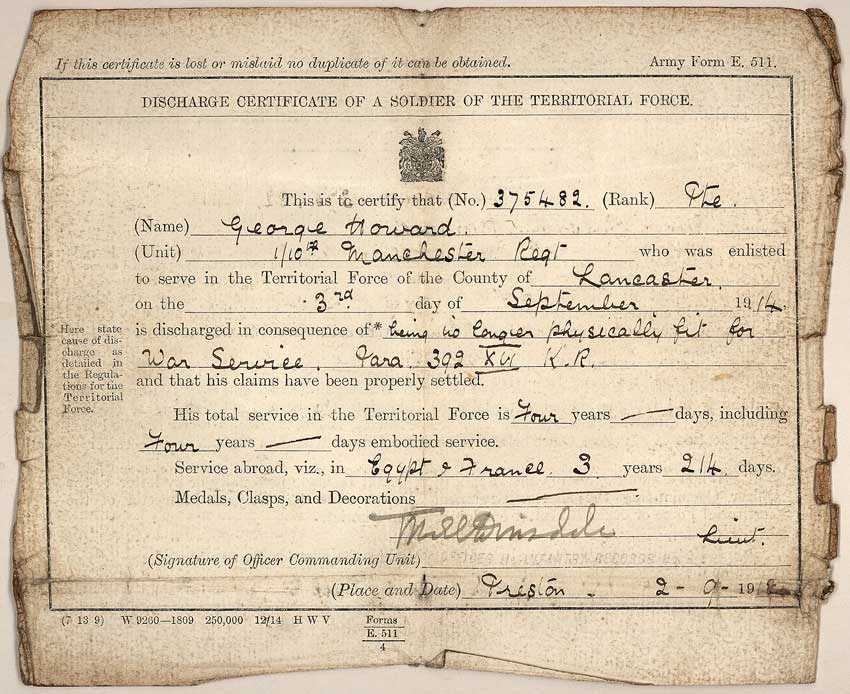 If this certificate is lost or mislaid no duplicate of it can be obtained. Army Form E. 511.
DISCHARGE CERTIFICATE OF A SOLDIER OF THE TERRITORIAL FORCE.
This is to certify that (No.) 375482. (Rank) Pte.
(Name) George Howard.
(Unit) 1/10th Manchester Regt who was enlisted
to serve in the Territorial Force of the County of Lancaster.
on the 3rd day of September 1914.
Here state cause of discharge as detailed in the Regulations for the Territorial Force.
is discharged in consequence of* being no longer physically fit for
War Service. Para. 392 XVI K.R.
and that his claims have been properly settled.
His total service in the Territorial Force is Four years — days, including
Four years — days embodied service.
Service abroad, viz., in Egypt & France 3 years 214 days.
Medals, Clasps, and Decorations —
Lieut.
(Signature of Officer Commanding Unit)
(Place and Date) Preston - 2-9-1918
(7 13 9) W 9260—1809 250,000 12/14 H W V Forms
E. 511
4